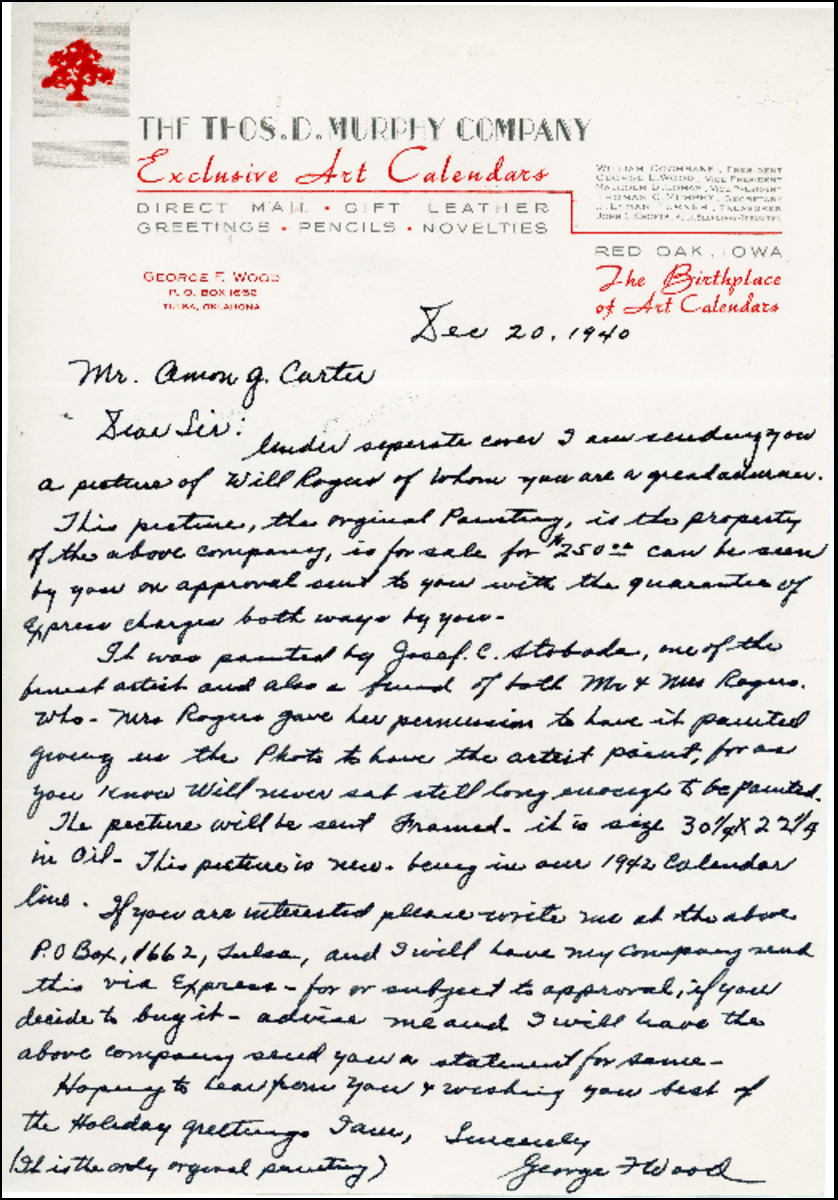 THE THOS. D. MURPHY COMPANY
Exclusive Art Calendars
DIRECT MAIL • GIFT LEATHER
GREETINGS • PENCILS • NOVELTIES
WILLIAM COCHRANE, PRESIDENT
GEORGE L. WOOD, VICE PRESIDENT
MALCOLM D. LOMAS, VICE PRESIDENT
THOMAS C. MURPHY, SECRETARY
TREASURER
RED OAK, IOWA
The Birthplace
of Art Calendars
GEORGE F. WOOD
P. O. BOX 1662
TULSA, OKLAHOMA
Dec 20, 1940
Mr. Amon G. Carter
Dear Sir:
Under seperate cover I am sending you
a picture of Will Rogers of whom you are a great admirer.
This picture, the orginal Painting, is the property
of the above company, is for sale for $250.00 can be seen
by you on approval sent to you with the guarantee of
Express charges both ways by you-
It was painted by Josef. C. Stoboda, one of the
finest artist and also a friend of both Mr & Mrs Rogers.
Who - Mrs Rogers gave her permission to have it painted
giving us the Photo to have the artist paint, for as
you know Will never sat still long enough to be painted.
The picture will be sent Framed - it is size 30 1/4 X 22 1/4
in Oil - This picture is new - being in our 1942 Calendar
line. If you are interested please write me at the above
P.O Box, 1662, Tulsa, and I will have my company send
this via Express - for or subject to approval, if you
decide to buy it - advise me and I will have the
above company send you a statement for same-
Hoping to hear from you & wishing you best of
the Holiday greetings I am, Sincerely
(It is the only orginal painting) George F Wood